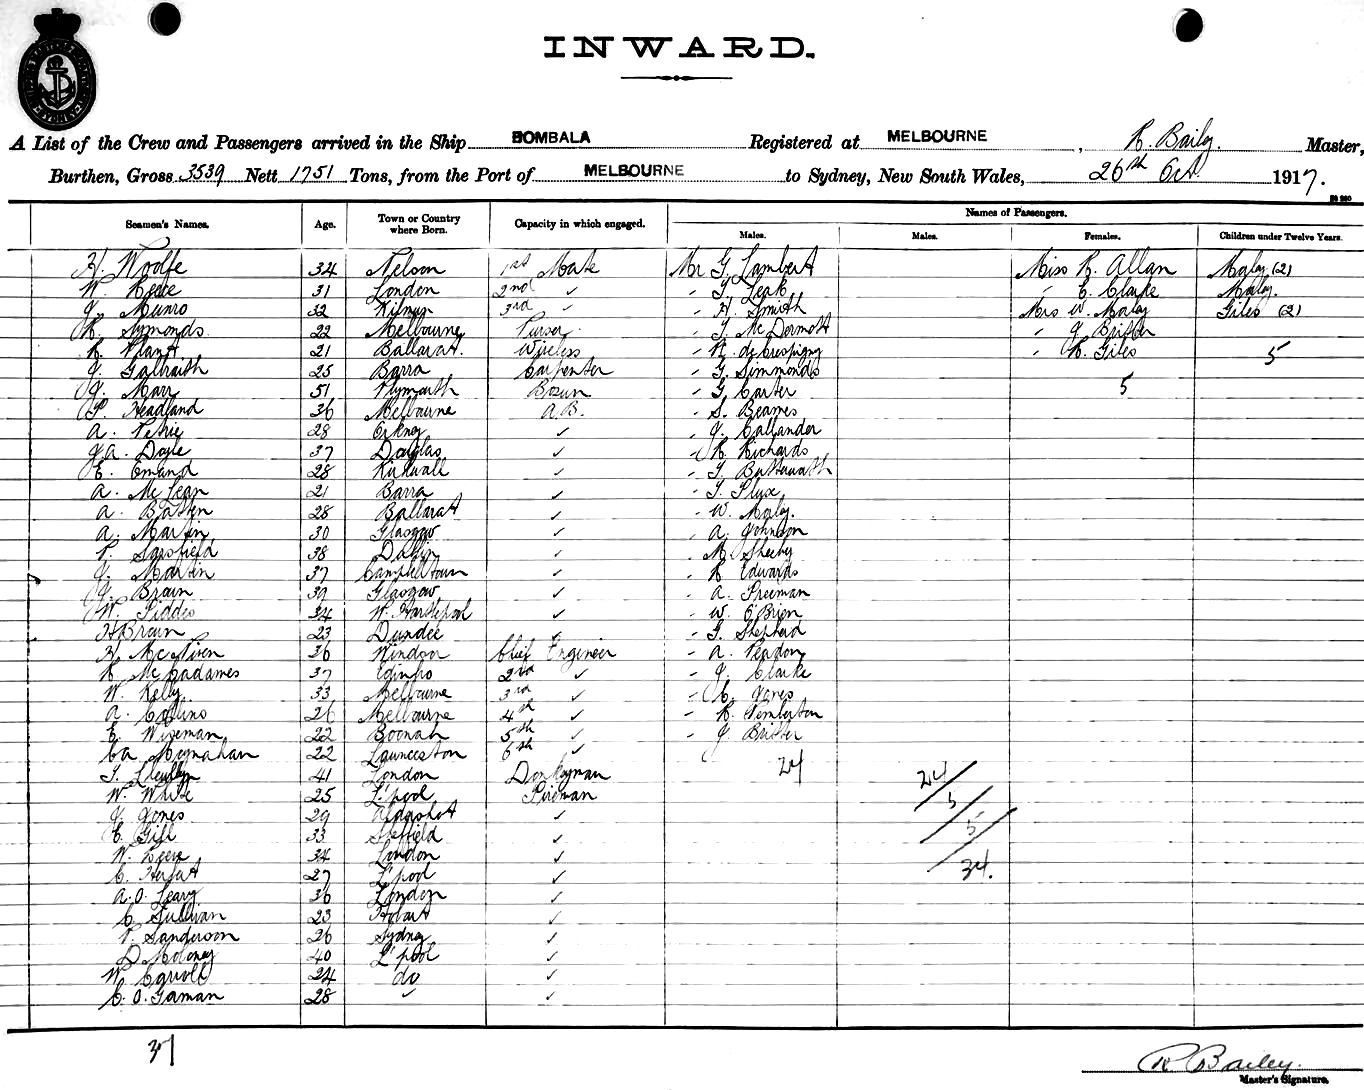 INWARD.
A List of the Crew and Passengers arrived in the Ship BOMBALA Registered at MELBOURNE, R. Baily. Master,
Burthen, Gross 3539 Nett 1751 Tons, from the Port of MELBOURNE to Sydney, New South Wales, 26th Oct 1917.
Names of Passengers.
Seamen's Names. Age. Town or Country where Born. Capacity in which engaged. Males. Males. Females. Children under Twelve Years.
H. Woolfe 34 Nelson 1st Mate Mr G. Lambert Miss R. Allan Maley (2)
W. Reece 31 London 2nd ✓ " T. Leak " C. Clarke Maley.
J. Munro 32 3rd ✓ " H. Smith Mrs W. Maley Giles (2)
R. Symonds 22 Melbourne Purser " T. McDermott " J. Britter
R. Plant 21 Ballarat. Wireless " R. de Crespigny " R. Giles 5
J. Galbraith 25 Barra Carpenter " G. Simmonds
J. Marr 51 Plymouth Bosun " G. Carter 5
P. Headland 36 Melbourne A.B. " S. Beames
A. Petrie 28 Orkney ✓ " J. Callander
J.A. Doyle 37 Douglas ✓ " R. Richards
E. 28 Kirkwall ✓ " T. Butterworth
A. McLean 21 Barra ✓ " T.
A. Batten 28 Ballarat ✓ " W. Maley.
A. Martin 30 Glasgow ✓ " A. Johnson
P. Sarsfield 38 Dublin ✓ " M. Sheehy
J. Martin 37 Campbeltown ✓ " R. Edwards
J. Brain 39 Glasgow ✓ " A. Freeman
W. 34 W. Hartlepool ✓ " W. O'Brien
H Brain 23 Dundee ✓ " G. Shepherd
H. McNiven 36 Windsor Chief Engineer " A. Peadon
R. McCadames 37 Edinbro 2nd ✓ " J. Clarke
W. Kelly 33 Melbourne 3rd ✓ " C. Jones
A. Collins 26 Melbourne 4th ✓ " R. Pemberton
E. Wiseman 22 Boonah 5th ✓ " J. Britter
Ca Moynahan 22 Launceston 6th ✓ 24
T. Llewllyn 41 London Donkeyman 24
W. White 25 L'pool Fireman 5
J. Jones 29 Aldershot ✓ 5
C. Gill 33 Sheffield ✓
W. Reeve 34 London ✓ 34.
C. Herbert 27 L'pool ✓
A. O. Leary 36 London ✓
C. Sullivan 23 Hobart ✓
P. Sanderson 26 Sydney ✓
D Moloney 40 L'pool ✓
W. Carroll 24 do ✓
C. O. Gorman 28 " ✓
37
R Bailey.
Master's Signature.